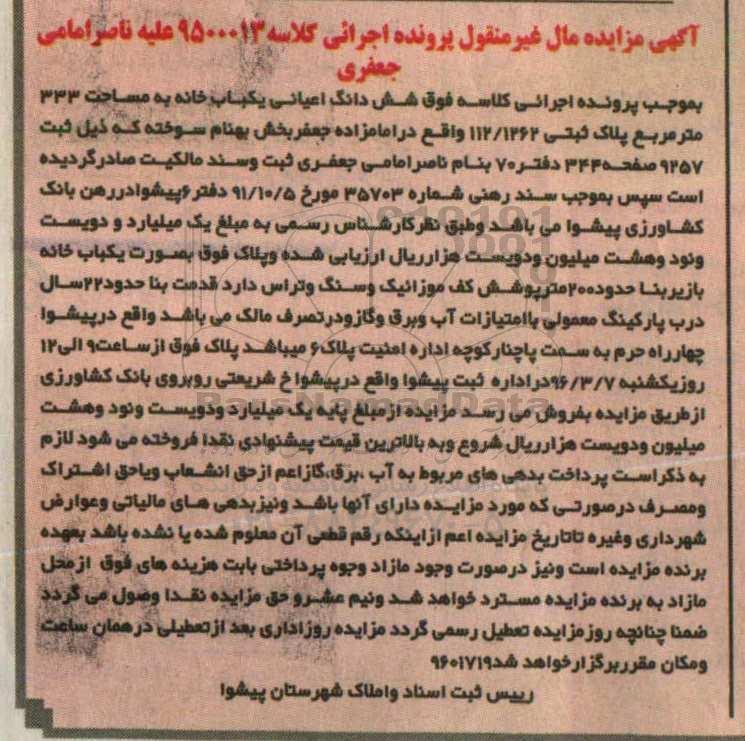 آگهی مزایده مال غیرمنقول پرونده اجرائی کلاسه ۹۵۰۰۰۱۳ علیه ناصرامامی
جعفری
بموجب پرونده اجرائی کلاسه فوق شش دانگ اعیانی یکباب خانه به مساحت ۳۳۳
مترمربع پلاک ثبتی ۱۱۲/۱۲۶۲ واقع درامامزاده جعفربخش بهنام سوخته که ذیل ثبت
۹۲۵۷ صفحه۳۴۴ دفتر۷۰ بنام ناصرامامی جعفری ثبت وسند مالکیت صادرگردیده
است سپس بموجب سند رهنی شماره ۳۵۷۰۳ مورخ ۹۱/۱۰/۵ دفتر۶پیشوادررهن بانک
کشاورزی پیشوا می باشد وطبق نظرکارشناس رسمی به مبلغ یک میلیارد و دویست
ونود وهشت میلیون ودویست هزارریال ارزیابی شده وپلاک فوق بصورت یکباب خانه
بازیربنا حدود۲۰۰مترپوشش کف موزائیک وسنگ وتراس دارد قدمت بنا حدود۲۲سال
درب پارکینگ معمولی باامتیازات آب وبرق وگازودرتصرف مالک می باشد واقع درپیشوا
چهارراه حرم به سمت پاچنارکوچه اداره امنیت پلاک۶ میباشد پلاک فوق ازساعت۹ الی۱۲
روزیکشنبه ۹۶/۳/۷دراداره ثبت پیشوا واقع درپیشواخ شریعتی روبروی بانک کشاورزی
ازطریق مزایده بفروش می رسد مزایده ازمبلغ پایه یک میلیارد ودویست ونود وهشت
میلیون ودویست هزارریال شروع وبه بالاترین قیمت پیشنهادی نقدا فروخته می شود لازم
به ذکراست پرداخت بدهی های مربوط به آب ،برق،گازاعم ازحق انشعاب ویاحق اشتراک
ومصرف درصورتی که مورد مزایده دارای آنها باشد ونیزبدهی های مالیاتی وعوارض
شهرداری وغیره تاتاریخ مزایده اعم ازاینکه رقم قطعی آن معلوم شده یا نشده باشد بعهده
برنده مزایده است ونیز درصورت وجود مازاد وجوه پرداختی بابت هزینه های فوق ازمحل
مازاد به برنده مزایده مسترد خواهد شد ونیم عشرو حق مزایده نقدا وصول می گردد
ضمنا چنانچه روزمزایده تعطیل رسمی گردد مزایده روزاداری بعد ازتعطیلی درهمان ساعت
ومکان مقرربرگزارخواهد شد۹۶۰۱۷۱۹
رییس ثبت اسناد واملاک شهرستان پیشوا
ParsNamadData